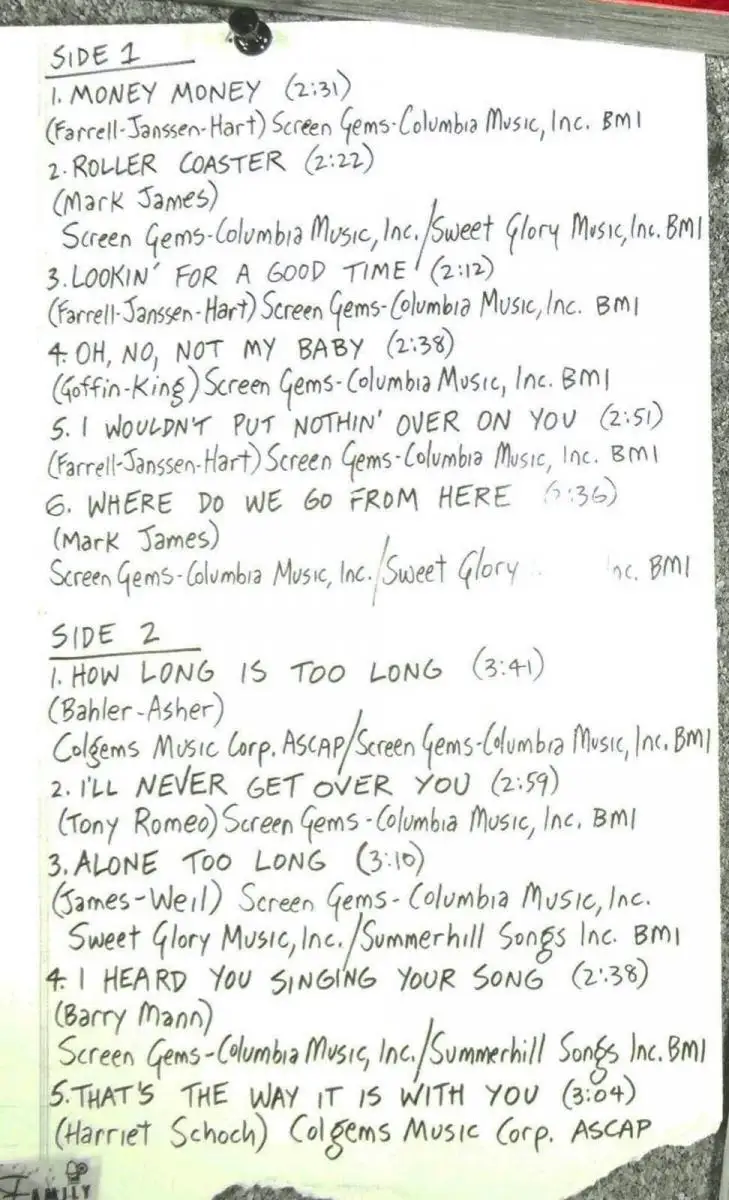 SIDE 1
1. MONEY MONEY (2:31)
(Farrell-Janssen-Hart) Screen Gems-Columbia Music, Inc. BMI
2. ROLLER COASTER (2:22)
(Mark James)
Screen Gems-Columbia Music, Inc./Sweet Glory Music, Inc. BMI
3. LOOKIN' FOR A GOOD TIME (2:12)
(Farrell-Janssen-Hart) Screen Gems-Columbia Music, Inc. BMI
4. OH, NO, NOT MY BABY (2:38)
(Goffin-King) Screen Gems-Columbia Music, Inc. BMI
5. I WOULDN'T PUT NOTHIN' OVER ON YOU (2:51)
(Farrell-Janssen-Hart) Screen Gems-Columbia Music, Inc. BMI
6. WHERE DO WE GO FROM HERE :36)
(Mark James)
Screen Gems-Columbia Music, Inc./Sweet Glory nc. BMI
SIDE 2
1. HOW LONG IS TOO LONG (3:41)
(Bahler-Asher)
Colgems Music Corp. ASCAP/Screen Gems-Columbia Music, Inc. BMI
2. I'LL NEVER GET OVER YOU (2:59)
(Tony Romeo) Screen Gems-Columbia Music, Inc. BMI
3. ALONE TOO LONG (3:10)
(James-Weil) Screen Gems-Columbia Music, Inc.
Sweet Glory Music, Inc./Summerhill Songs Inc. BMI
4. I HEARD YOU SINGING YOUR SONG (2:38)
(Barry Mann)
Screen Gems-Columbia Music, Inc./Summerhill Songs Inc. BMI
5. THAT'S THE WAY IT IS WITH YOU (3:04)
(Harriet Schoch) Colgems Music Corp. ASCAP
FAMILY